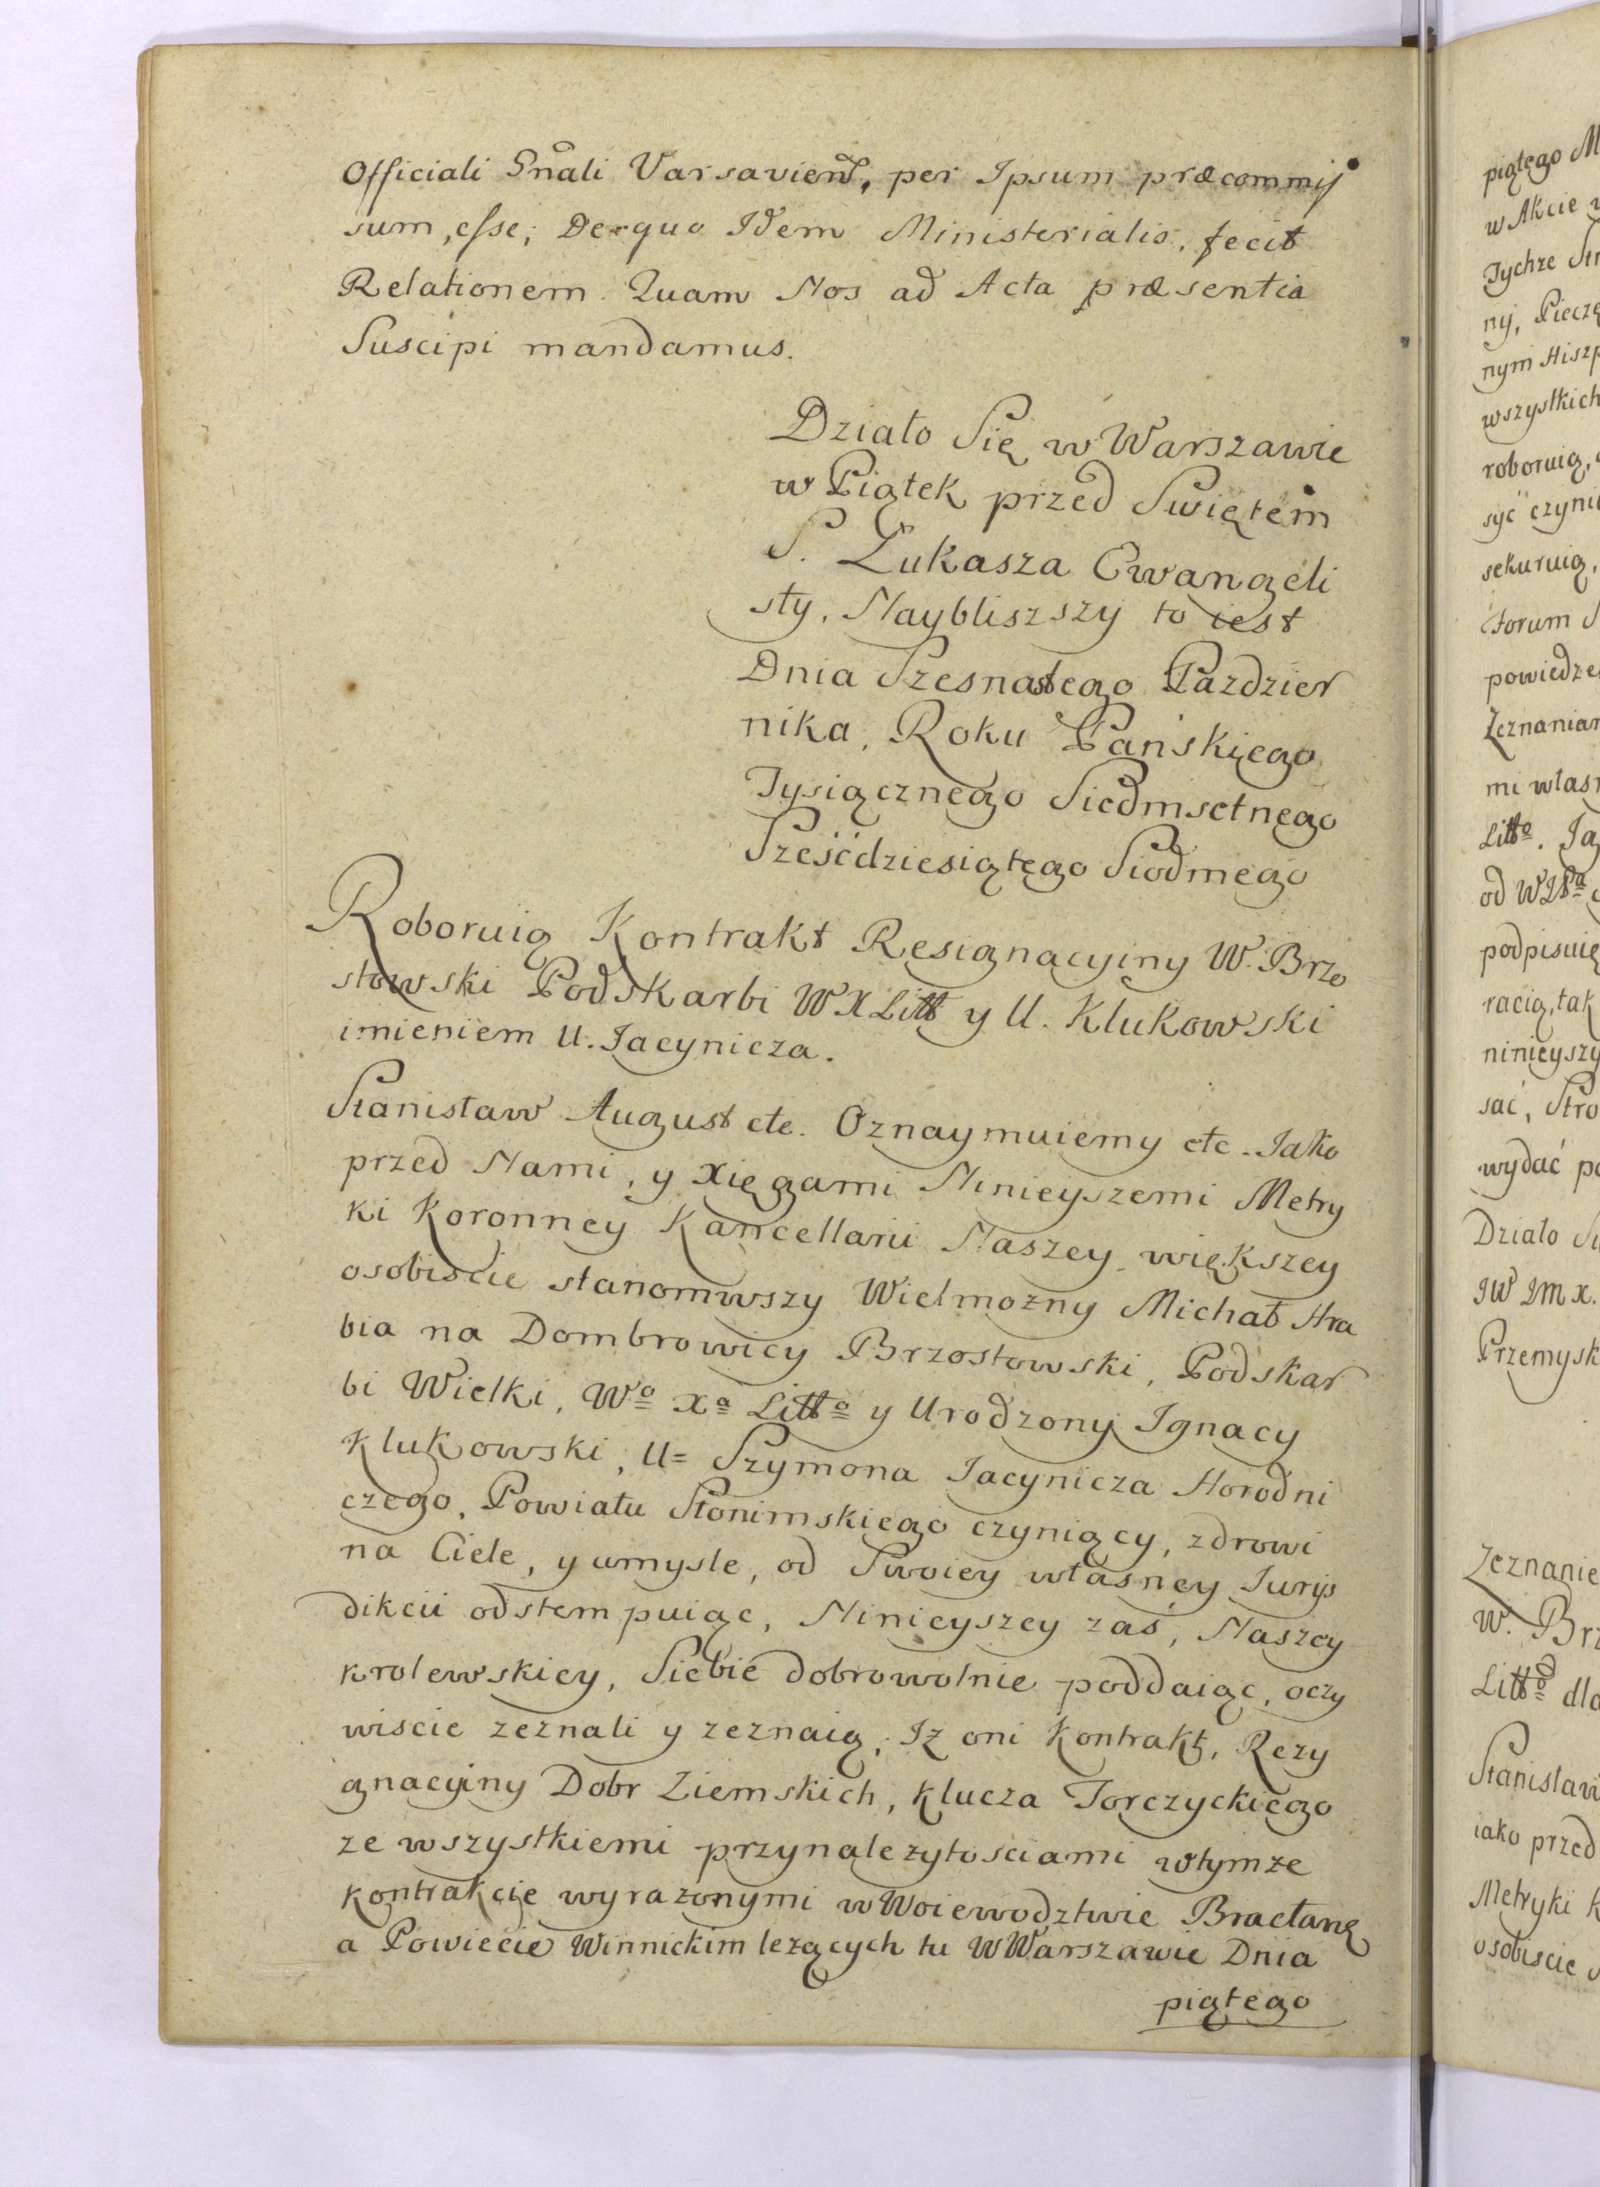 Officiali Gñali Varsavien̄, per Ipsum præcommis
sum, esse; De quo Idem Ministerialis, fecit
Relationem. Quam Nos ad Acta præsentia
Suscipi mandamus.
Działo Się w Warszawie
w Piątek przed Swiętem
S. Łukasza Ewangeli
sty, Naybliszszy to iest
Dnia Szesnastego Pazdzier
nika, Roku Pańskiego
Tysiącznego Siedmsetnego
Sześćdziesiątego Siodmego
Roboruią Kontrakt Resignacyiny W. Brzo
stowski Podskarbi W X Litt y U. Klukowski
imieniem U. Jacynicza.
Stanisław August etc. Oznaymuiemy etc. Jako
przed Nami, y Xięgami Ninieyszemi Metry
ki Koronney Kancellarii Naszey większey
osobiscie stanowwszy Wielmozny Michał Hra
bia na Dombrowicy Brzostowski, Podskar
bi Wielki, Wo Xa Litto y Urodzony Ignacy
Klukowski, U= Szymona Jacynicza Horodni
czego, Powiatu Słonimskiego czyniący, zdrowi
na Ciele, y umysle, od Swoiey własney Jurys
dikcii odstempuiąc, Ninieyszey zaś, Naszey
krolewskiey, Siebie dobrowolnie poddaiąc, oczy
wiscie zeznali y zeznaią, Iz oni Kontrakt, Rezy
gnacyiny Dobr Ziemskich, klucza Torczyckiego
ze wszystkiemi przynalezytosciami wtymze
kontrakcie wyrazonymi w Woiewodztwie Bracłanę
a Powiecie Winnickim lezących tu w Warszawie Dnia
piątego
piątego
w Akcie
Tychze
nym
wszystkich
roboruią,
syć
sekuruią,
Forum
mi
Litto.
podpisuię
racią, tak
ninieyszy
wydać
Działo
JW JM X.
Zeznanie
W.
Litt
iako przed
Metryki
osobiscie